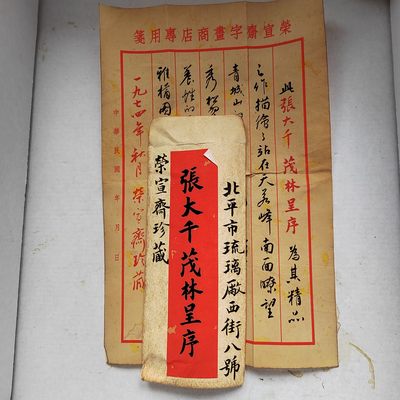 榮宣齋字畫商店專用箋
此張大千茂林呈序為其精品
之作描繪了站在天若峰南面瞭望
青城山
秀
養性的
雅楠图
一九七四年秋月榮宣齋珍藏
中華民國 年 月 日
北平市琉璃廠西街八號
張大千茂林呈序
榮宣齋珍藏